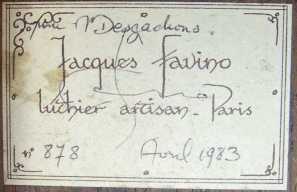 Jacques Favino
luthier artisan - Paris
n° 878 Avril 1983